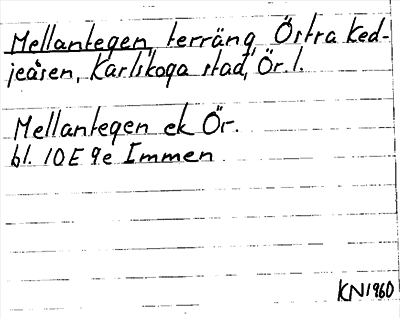 Mellantegen, terräng, Östra Ked-
jeåsen, Karlskoga stad, Ör. l.
Mellantegen ek Ör.
bl. 10E 9e Immen
KN1960